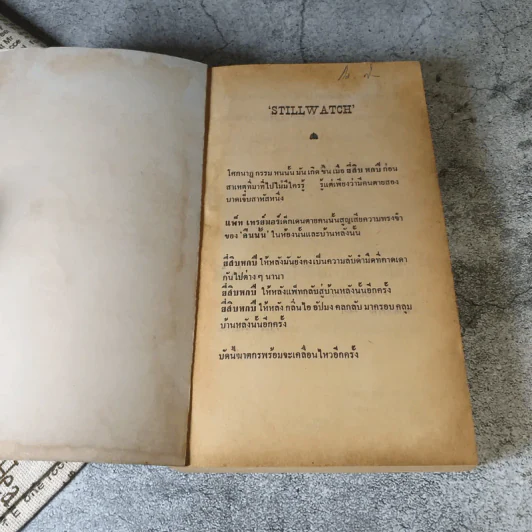 'STILLWATCH'
โศกนาฏกรรม หนนั้น มันเกิด ขึ้น เมื่อ ยี่สิบ หกปี ก่อน
สาเหตุที่มาที่ไปไม่มีใครรู้ รู้แต่เพียงว่ามีคนตายสอง
บาดเจ็บสาหัสหนึ่ง
แพ็ท เทรส์มอร์เด็กเดนตายคนนั้นสูญเสียความทรงจำ
ของ 'คืนนั้น' ในห้องนั้นและบ้านหลังนั้น
ยี่สิบหกปี ให้หลังมันยังคงเป็นความลับดำมืดที่คาดเดา
กันไปต่าง ๆ นานา
ยี่สิบหกปี ให้หลังแพ็ทกลับสู่บ้านหลังนั้นอีกครั้ง
ยี่สิบหกปี ให้หลัง กลิ่นไอ อัปมงคลกลับ มาครอบ คลุม
บ้านหลังนั้นอีกครั้ง
บัดนี้ฆาตกรพร้อมจะเคลื่อนไหวอีกครั้ง